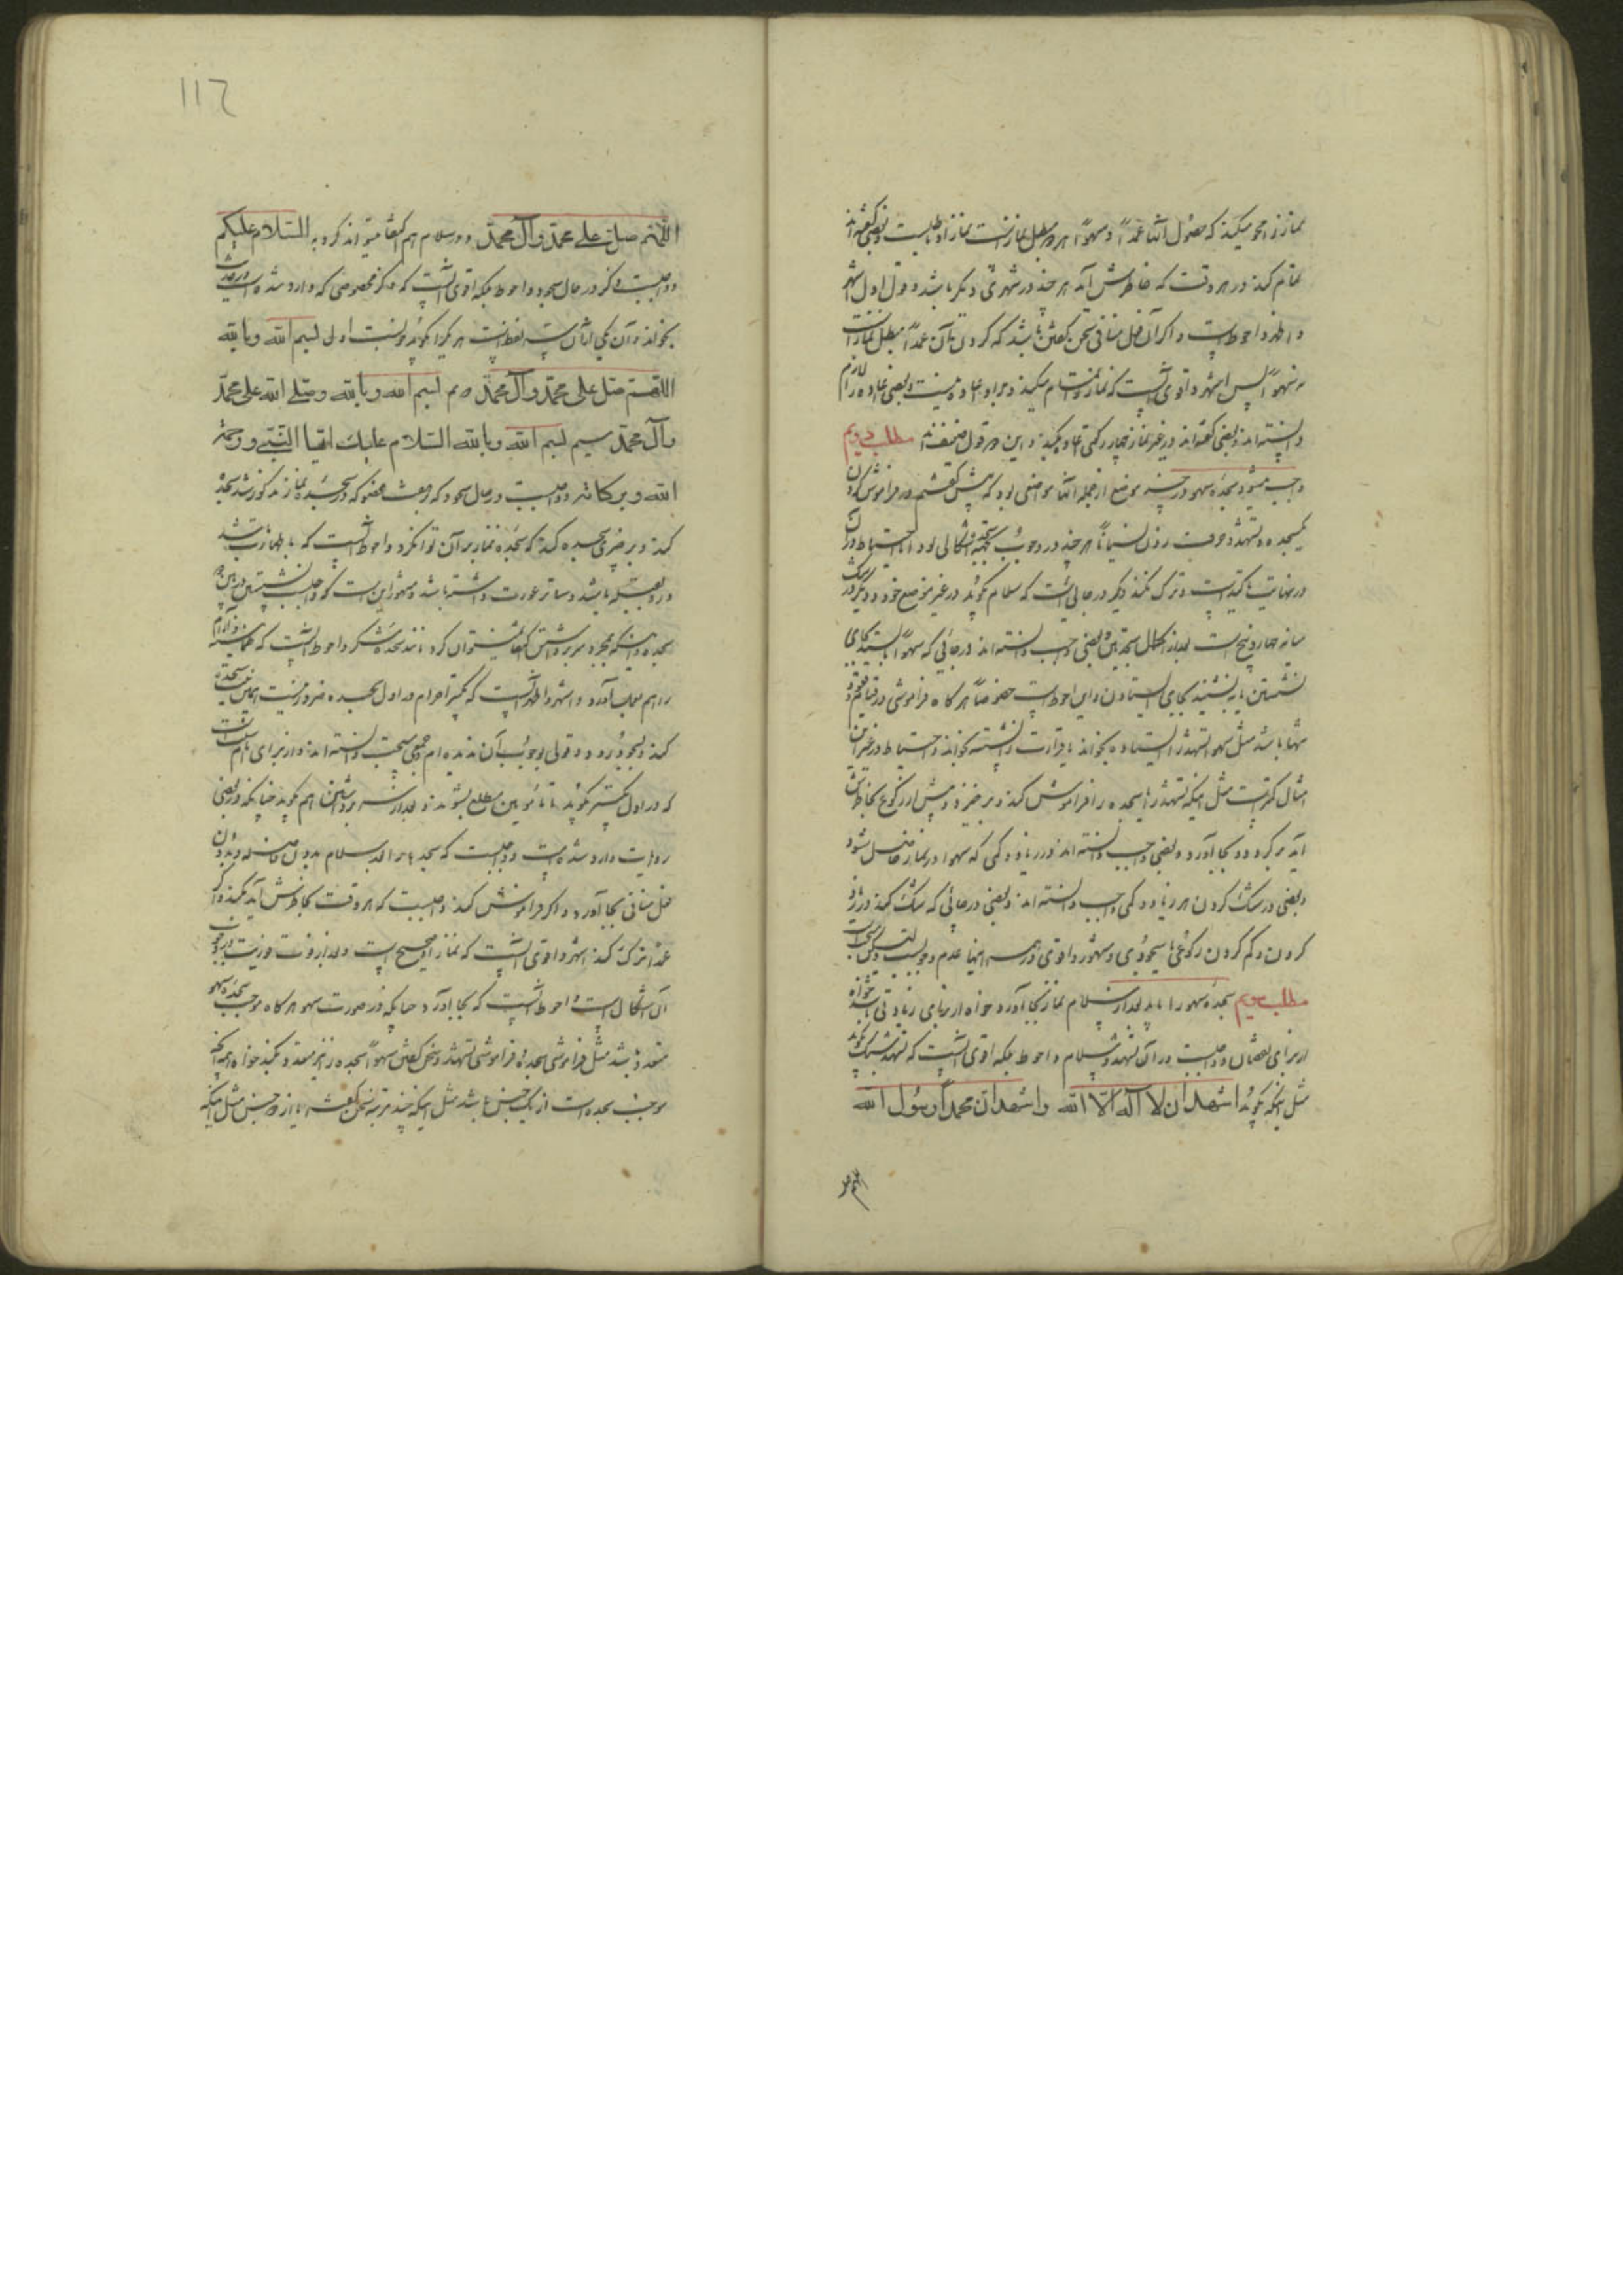 نماز را محو میکند که حصول آنها عمداً و سهواً هر دو مبطل نماز است نماز او باطلست و بعضی گفته‌اند
تمام کند در هر وقت که خاطرش آید هر چند در شهری دیگر باشد و قول اول اشهر
و اظهر و احوط است و اگر آن فعل منافی سخن گفتن باشد که کردن آن عمداً مبطل نماز است
نه سهواً پس اشهر و اقوی آنست که نماز را تمام میکند و بر او اعاده نیست و بعضی اعاده را لازم
دانسته‌اند و بعضی گفته‌اند در غیر نماز چهار رکعتی اعاده میکند و این دو قول ضعیفند مطلب دویم
واجب میشود سجده سهو در چند موضع از جمله آنها مواضعی بود که پیش گفتیم در فراموش کردن
یکسجده و تشهد و حرف زدن نسیاناً هر چند در وجوب اشکالی بود اما احتیاط در آن
در نهایت تاکید است و ترک نکند دیگر در جائی است که سلام گوید در غیر موضع خود و دیگر در شک
میانه چهار و پنج است بعد از اکمال سجدتین و بعضی واجب دانسته‌اند در جائی که سهواً بایستد بجای
نشستن یا بنشیند بجای ایستادن و این احوط است خصوصاً هر گاه فراموشی در
تنها باشد مثل سهو تشهد را ایستاده بخواند یا قرائت را نشسته بخواند و احتیاط در غیر این
امثال کمتر است مثل اینکه تشهد را یا سجده را فراموش کند و برخیزد و پیش از رکوع بخاطرش
آید برگردد و بجا آورد و بعضی واجب دانسته‌اند در زیاد و کمی که سهوا در نماز حاصل شود
و بعضی در شک کردن هر زیاد و کمی واجب دانسته‌اند و بعضی در جائی که شک کند در زیاد
کردن و کم کردن رکوعی یا سجودی و مشهور و اقوی در همه اینها عدم وجوبست
مطلب سویم سجده سهو را باید بعد از سلام نماز بجا آورد خواه از برای زیادتی باشد خواه
از برای نقصان و واجبست در آن تشهد و سلام و احوط بلکه اقوی آنست که تشهد سبک بگوید
مثل اینکه بگوید اشهد ان لا اله الا الله و اشهد ان محمداً رسول الله
اللهم صل
١١٦
اللهم صل على محمد وآل محمد و در سلام هم اکتفا میتواند کرد به السلام علیکم
و واجبست ذکر در حال سجود و احوط بلکه اقوی آنست که ذکر مخصوصی که وارد شده است در حدیث
بخواند و آن یکی از این سه لفظ است هر یک را که گوید خوبست اول بسم الله وبالله
اللهم صل على محمد وآل محمد دویم بسم الله وبالله وصلى الله على محمد
وآل محمد سیم بسم الله وبالله السلام عليك ايها النبي ورحمة
الله وبركاته و واجبست در حال سجود که هفت عضو که در سجده نماز مذکور شد سجده
کند و بر چیزی سجده کند که سجده نماز بر آن توان کرد و احوط آنست که با طهارت باشد
و رو بقبله باشد و ساتر عورت داشته باشد و مشهور اینست که واجبست نشستن در بین دو
سجده و اینکه بمجرد سر برداشتن اکتفا نمیتوان کرد مانند سجده شکر و احوط آنست که طمانینه و آرام
را هم بعمل آورد و اشهر و اظهر آنست که تکبیر احرام در اول سجده ضرور نیست همین نیت سجده
کند و بسجود رود و قولی بوجوب آن ندیده‌ام و جمعی سنت دانسته‌اند و از برای امام سنت است
که در اول تکبیر گوید تا مأمومین مطلع شوند و بعد از سر برداشتن هم گوید چنانکه در بعضی
روایت وارد شده است و واجبست که سجده را بعد سلام بدون فاصله و بدون
فعل منافی بجا آورد و اگر فراموش کند واجبست که هر وقت بخاطرش آید بکند و اگر
عمداً ترک کند اشهر و اقوی آنست که نماز او صحیح است و بعد از فوت فوریت در وجوب
آن اشکالست و احوط آنست که بجا آورد چنانکه در صورت سهو هر گاه موجب سجده سهو
متعدد باشد مثل فراموشی سجده و فراموشی تشهد و سخن گفتن سهواً سجده را نیز متعدد بکند خواه
موجب سجده است از یک جنس باشد مثل اینکه چند مرتبه سخن گفته یا از دو جنس مثل اینکه